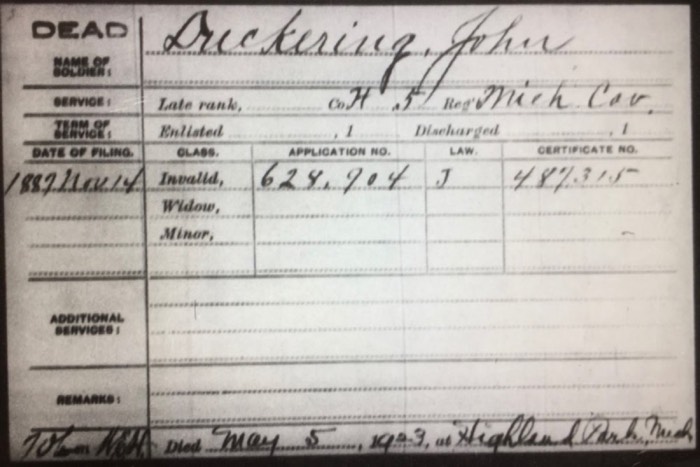 DEAD
NAME OF SOLDIER: Duckering, John
SERVICE: Late rank, Co. H, 5 Reg't Mich Cav.
TERM OF SERVICE: Enlisted , 1 Discharged , 1
DATE OF FILING. CLASS. APPLICATION NO. LAW. CERTIFICATE NO.
Nov 14 Invalid, 628,904 J 487315
Widow,
Minor,
ADDITIONAL SERVICES:
REMARKS:
Died May 5, 1923, at Highland Park, Mich